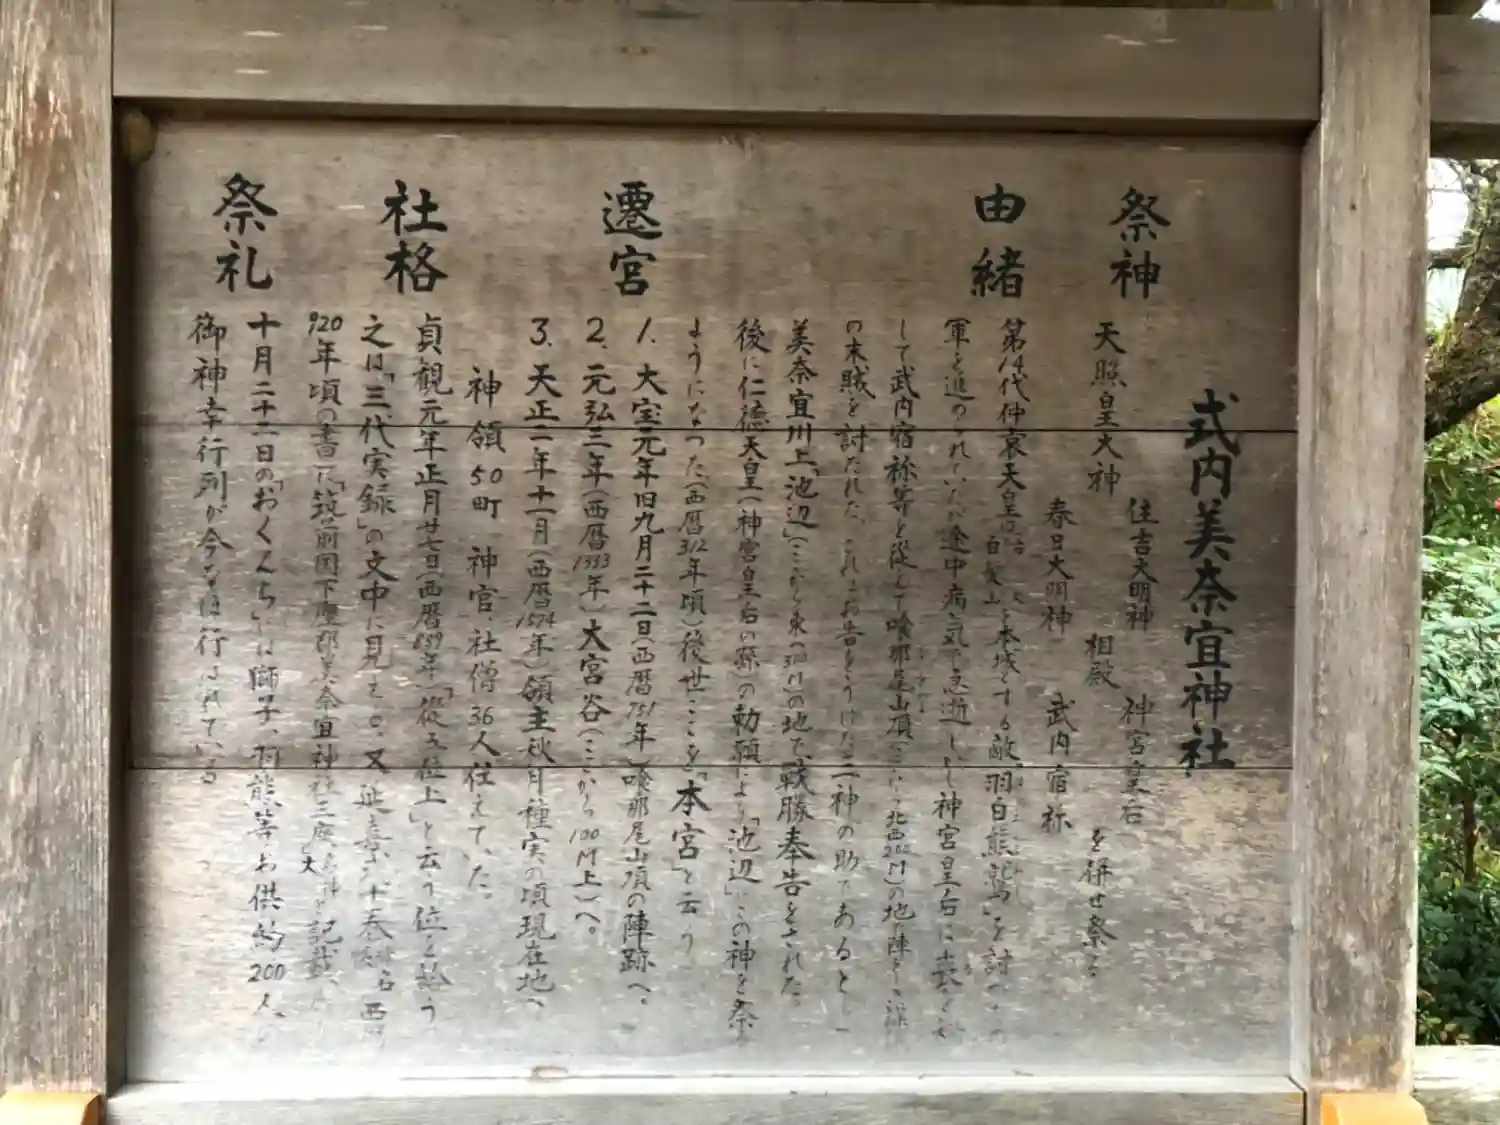 式内美奈宜神社
祭神
天照皇大神
住吉大明神
春日大明神
相殿
神宮皇后
武内宿祢
を併せ祭る
由緒
第14代仲哀天皇は古 白髪山 を本城とする敵「羽白熊鷲」を討べ
軍を進められていたが途中病気で急逝し 神宮皇后は
して武内宿祢等を従えて喰那尾山頂(ここより北西200M)の地に陣を
の末賊を討たれた。これはお告をうけた三神の助であると
美奈宜川上「池辺」(ここから東へ300M)の地で戦勝奉告をされた。
後に仁徳天皇(神宮皇后の孫)の勅願により「池辺」にこの神を祭
ようになった(西暦312年頃)後世ここを「本宮」と云う
遷宮
1. 大宝元年旧九月二十二日(西暦751年)喰那尾山項の陣跡へ。
2. 元弘三年(西暦1333年)大宮谷(ここから100M上)へ。
3. 天正二年十一月(西暦1574年)領主秋月種実の頃現在地へ
神領50町 神官、社僧36人仕えていた。
社格
貞観元年正月廿七日(西暦859年)「従五位上」と云う位を給う
之は「三代実録」の文中に見える。又延喜 西暦
920年頃の書に「筑前国下座郡美奈宜神社三座 大 と記載
祭礼
十月二十二日の「おくんち」には獅子、羽熊等お供約200人の
御神幸行列が今なほ行はれている